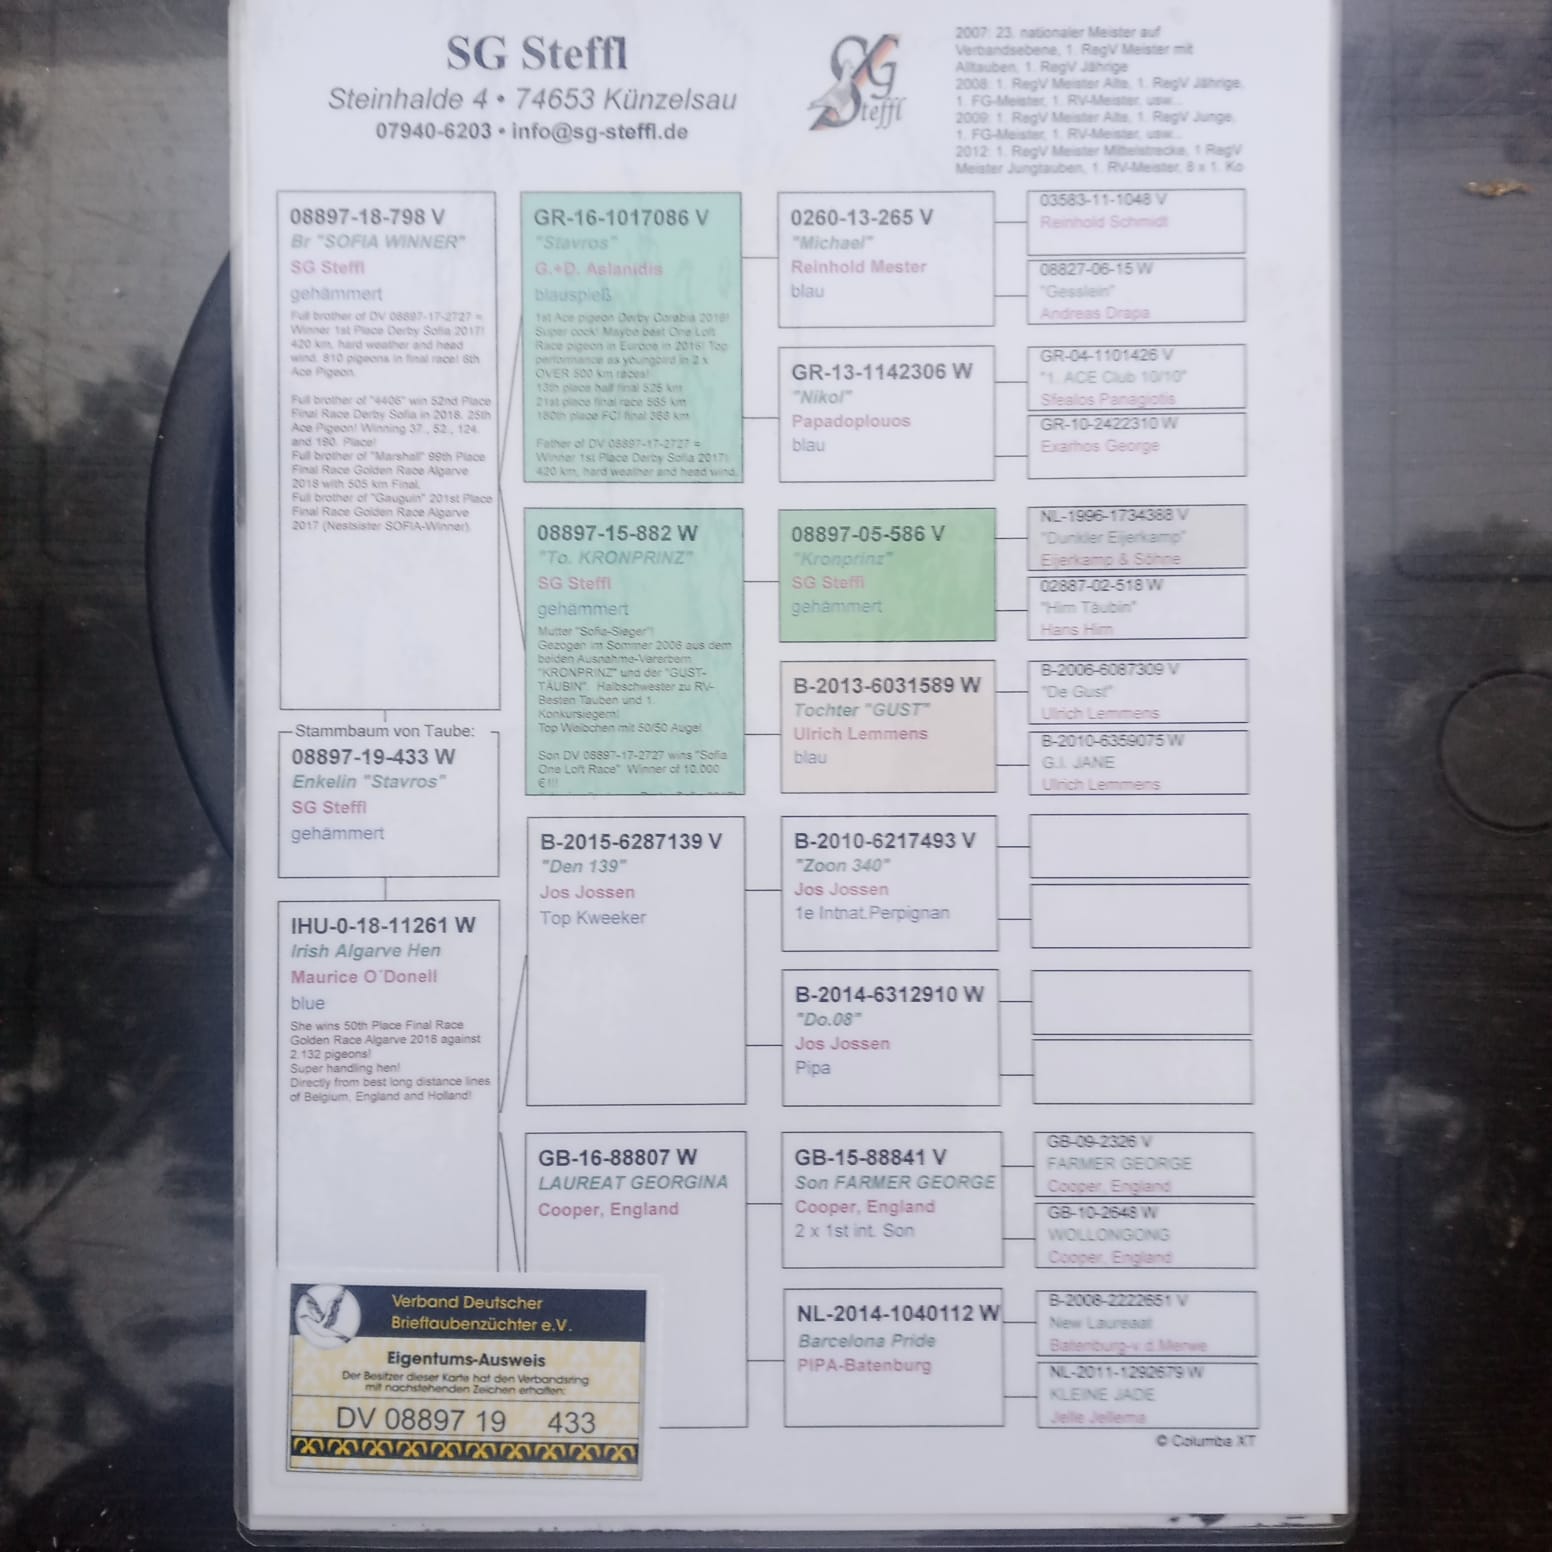 SG Steffl
Steinhalde 4 • 74653 Künzelsau
07940-6203 • info@sg-steffl.de
SG Steffl
2007: 23. nationaler Meister auf
Verbandsebene, 1. RegV Meister mit
Alttauben, 1. RegV Jährige
2008: 1. RegV Meister Alte, 1. RegV Jährige,
1. FG-Meister, 1. RV-Meister, usw...
2009: 1. RegV Meister Alte, 1. RegV Junge,
1. FG-Meister, 1. RV-Meister, usw...
2012: 1. RegV Meister Mittelstrecke, 1 RegV
Meister Jungtauben, 1. RV-Meister, 8 x 1. Ko
08897-18-798 V
Br "SOFIA WINNER"
SG Steffl
gehämmert
Full brother of DV 08897-17-2727 =
Winner 1st Place Derby Sofia 2017!
420 km, hard weather and head
wind. 810 pigeons in final race! 6th
Ace Pigeon.
Full brother of "4406" win 52nd Place
Final Race Derby Sofia in 2018. 25th
Ace Pigeon! Winning 37., 52., 124.
and 190. Place!
Full brother of "Marshall" 99th Place
Final Race Golden Race Algarve
2018 with 505 km Final.
Full brother of "Gauguin" 201st Place
Final Race Golden Race Algarve
2017 (Nestsister SOFIA-Winner).
Stammbaum von Taube:
08897-19-433 W
Enkelin "Stavros"
SG Steffl
gehämmert
IHU-0-18-11261 W
Irish Algarve Hen
Maurice O´Donell
blue
She wins 50th Place Final Race
Golden Race Algarve 2018 against
2.132 pigeons!
Super handling hen!
Directly from best long distance lines
of Belgium, England and Holland!
GR-16-1017086 V
"Stavros"
G.+D. Aslanidis
blauspieß
1st Ace pigeon Derby Carabia 2016!
Super cock! Maybe best One Loft
Race pigeon in Europe in 2016! Top
performance as youngbird in 2 x
OVER 500 km races!
13th place half final 525 km
21st place final race 565 km
180th place FCI final 368 km
Father of DV 08897-17-2727 =
Winner 1st Place Derby Sofia 2017!
420 km, hard weather and head wind.
08897-15-882 W
"To. KRONPRINZ"
SG Steffl
gehämmert
Mutter "Sofia-Sieger"!
Gezogen im Sommer 2006 aus dem
beiden Ausnahme-Vererbern
"KRONPRINZ" und der "GUST-
TÄUBIN". Halbschwester zu RV-
Besten Tauben und 1.
Konkursiegern!
Top Weibchen mit 50/50 Auge!
Son DV 08897-17-2727 wins "Sofia
One Loft Race". Winner of 10.000
€!!!
B-2015-6287139 V
"Den 139"
Jos Jossen
Top Kweeker
GB-16-88807 W
LAUREAT GEORGINA
Cooper, England
0260-13-265 V
"Michael"
Reinhold Mester
blau
GR-13-1142306 W
"Nikol"
Papadoplouos
blau
08897-05-586 V
"Kronprinz"
SG Steffl
gehämmert
B-2013-6031589 W
Tochter "GUST"
Ulrich Lemmens
blau
B-2010-6217493 V
"Zoon 340"
Jos Jossen
1e Intnat.Perpignan
B-2014-6312910 W
"Do.08"
Jos Jossen
Pipa
GB-15-88841 V
Son FARMER GEORGE
Cooper, England
2 x 1st int. Son
NL-2014-1040112 W
Barcelona Pride
PIPA-Batenburg
03583-11-1048 V
Reinhold Schmidt
08827-06-15 W
"Gesslein"
Andreas Drapa
GR-04-1101426 V
"1. ACE Club 10/10"
Sfealos Panagiotis
GR-10-2422310 W
Exarhos George
NL-1996-1734388 V
"Dunkler Eijerkamp"
Eijerkamp & Söhne
02887-02-518 W
"Hirn Täubin"
Hans Hirn
B-2006-6087309 V
"De Gust"
Ulrich Lemmens
B-2010-6359075 W
G.I. JANE
Ulrich Lemmens
GB-09-2326 V
FARMER GEORGE
Cooper, England
GB-10-2648 W
WOLLONGONG
Cooper, England
B-2008-2222651 V
New Laureaat
Batenburg-v.d.Merwe
NL-2011-1292679 W
KLEINE JADE
Jelle Jellema
© Columba XT
Verband Deutscher
Brieftaubenzüchter e.V.
Eigentums-Ausweis
Der Besitzer dieser Karte hat den Verbandsring
mit nachstehenden Zeichen erhalten:
DV 08897 19 433